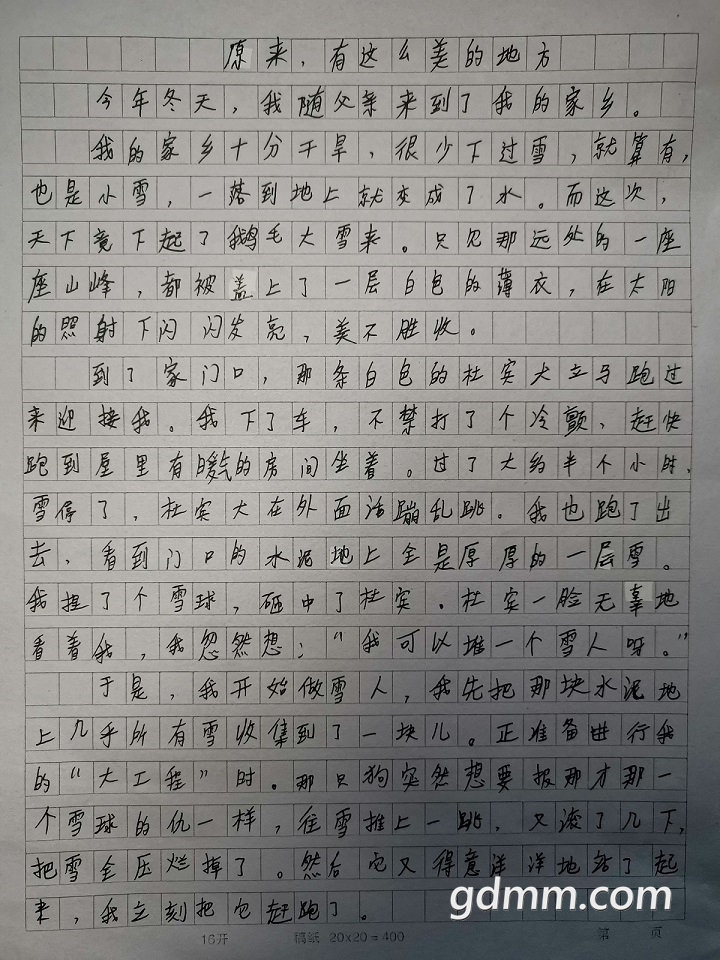 原来，有这么美的地方
今年冬天，我随父亲来到了我的家乡。
我的家乡十分干旱，很少下过雪，就算有，
也是小雪，一落到地上就变成了水。而这次，
天下竟下起了鹅毛大雪来。只见那远处的一座
座山峰，都被盖上了一层白色的薄衣，在太阳
的照射下闪闪发亮，美不胜收。
到了家门口，那条白色的杜宾犬立马跑过
来迎接我。我下了车，不禁打了个冷颤，赶快
跑到屋里有暖气的房间坐着。过了大约半个小时，
雪停了，杜宾犬在外面活蹦乱跳。我也跑了出
去，看到门口的水泥地上全是厚厚的一层雪。
我捏了个雪球，砸中了杜宾。杜宾一脸无辜地
看着我，我忽然想：“我可以堆一个雪人呀。”
于是，我开始做雪人，我先把那块水泥地
上几乎所有雪收集到了一块儿。正准备进行我
的“大工程”时。那只狗突然想要报那才那一
个雪球的仇一样，往雪堆上一跳，又滚了几下，
把雪全压烂掉了。然后它又得意洋洋地站了起
来，我立刻把它赶跑了。
gdmm.com
16开 稿纸 20×20=400 第 页